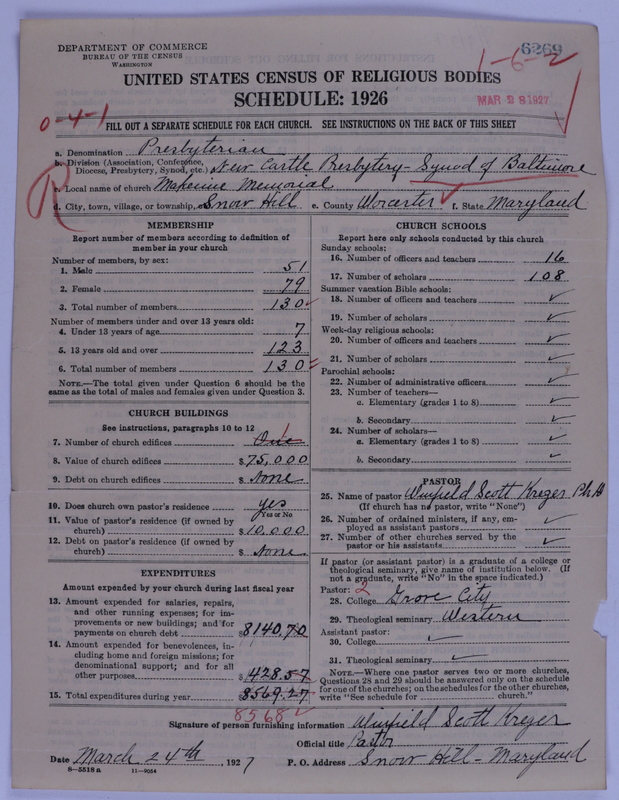 DEPARTMENT OF COMMERCE
BUREAU OF THE CENSUS
WASHINGTON
6269
1-6-2
UNITED STATES CENSUS OF RELIGIOUS BODIES
SCHEDULE: 1926
MAR 28 1927
0-4-1
FILL OUT A SEPARATE SCHEDULE FOR EACH CHURCH. SEE INSTRUCTIONS ON THE BACK OF THIS SHEET
a. Denomination Presbyterian
b. Division (Association, Conference, Diocese, Presbytery, Synod, etc.) New Castle Presbytery - Synod of Baltimore
R
c. Local name of church Makemie Memorial
d. City, town, village, or township, Snow Hill e. County Worcester f. State Maryland
MEMBERSHIP
Report number of members according to definition of
member in your church
Number of members, by sex:
1. Male 51
2. Female 79
3. Total number of members 130
Number of members under and over 13 years old:
4. Under 13 years of age 7
5. 13 years old and over 123
6. Total number of members 130
NOTE.—The total given under Question 6 should be the
same as the total of males and females given under Question 3.
CHURCH BUILDINGS
See instructions, paragraphs 10 to 12
7. Number of church edifices One 1
8. Value of church edifices $75,000
9. Debt on church edifices $ None
10. Does church own pastor's residence yes
Yes or No
11. Value of pastor's residence (if owned by
church) $10,000
12. Debt on pastor's residence (if owned by
church) $ None
EXPENDITURES
Amount expended by your church during last fiscal year
13. Amount expended for salaries, repairs,
and other running expenses; for im-
provements or new buildings; and for
payments on church debt $8140.70
14. Amount expended for benevolences, in-
cluding home and foreign missions; for
denominational support; and for all
other purposes $428.57
15. Total expenditures during year $8569.27
8568
CHURCH SCHOOLS
Report here only schools conducted by this church
Sunday schools:
16. Number of officers and teachers 16
17. Number of scholars 108
Summer vacation Bible schools:
18. Number of officers and teachers ✓
19. Number of scholars ✓
Week-day religious schools:
20. Number of officers and teachers ✓
21. Number of scholars ✓
Parochial schools:
22. Number of administrative officers ✓
23. Number of teachers—
a. Elementary (grades 1 to 8) ✓
b. Secondary ✓
24. Number of scholars—
a. Elementary (grades 1 to 8) ✓
b. Secondary ✓
PASTOR
25. Name of pastor Winfield Scott Kreger Ph.D
(If church has no pastor, write "None")
26. Number of ordained ministers, if any, em-
ployed as assistant pastors ✓
27. Number of other churches served by the
pastor or his assistants ✓
If pastor (or assistant pastor) is a graduate of a college or
theological seminary, give name of institution below. (If
not a graduate, write "No" in the space indicated.)
Pastor: 2
28. College Grove City
29. Theological seminary Western
Assistant pastor:
30. College ✓
31. Theological seminary ✓
NOTE.—Where one pastor serves two or more churches,
Questions 28 and 29 should be answered only on the schedule
for one of the churches; on the schedules for the other churches,
write "See schedule for church."
Signature of person furnishing information Winfield Scott Kreger
Official title Pastor
Date March 24th, 1927 P. O. Address Snow Hill - Maryland
8—5518 a 11—9054